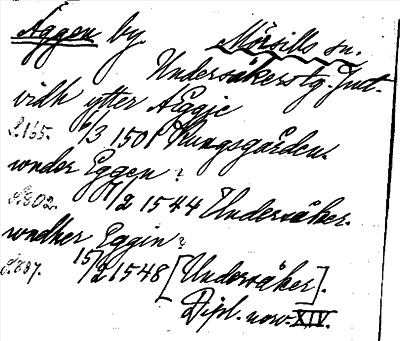 Äggen by. Mörsills sn.
Undersåkers tg. Jmt.
vidh ytter Äggie
S. 165. 6/3 1501 Kungsgården.
wnder Eggen?
S. 602. 7/2 1544 Undersåker.
wndher Eggin?
S. 687. 15/2 1548 [Undersåker].
Dipl. norv. XIV.